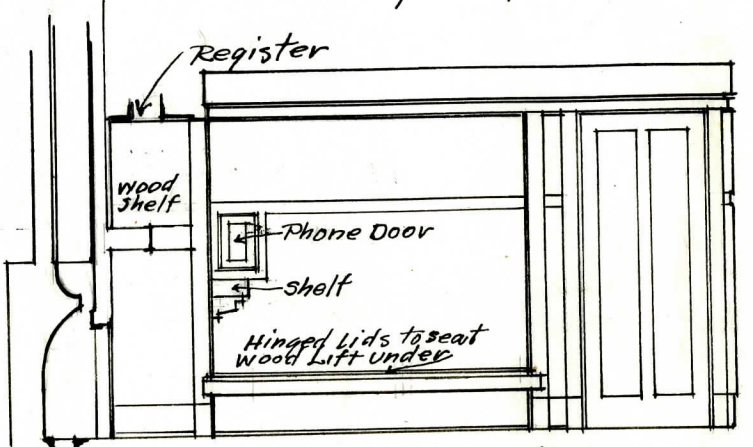 Register
wood
shelf
Phone Door
shelf
Hinged Lids to seat
wood Lift under